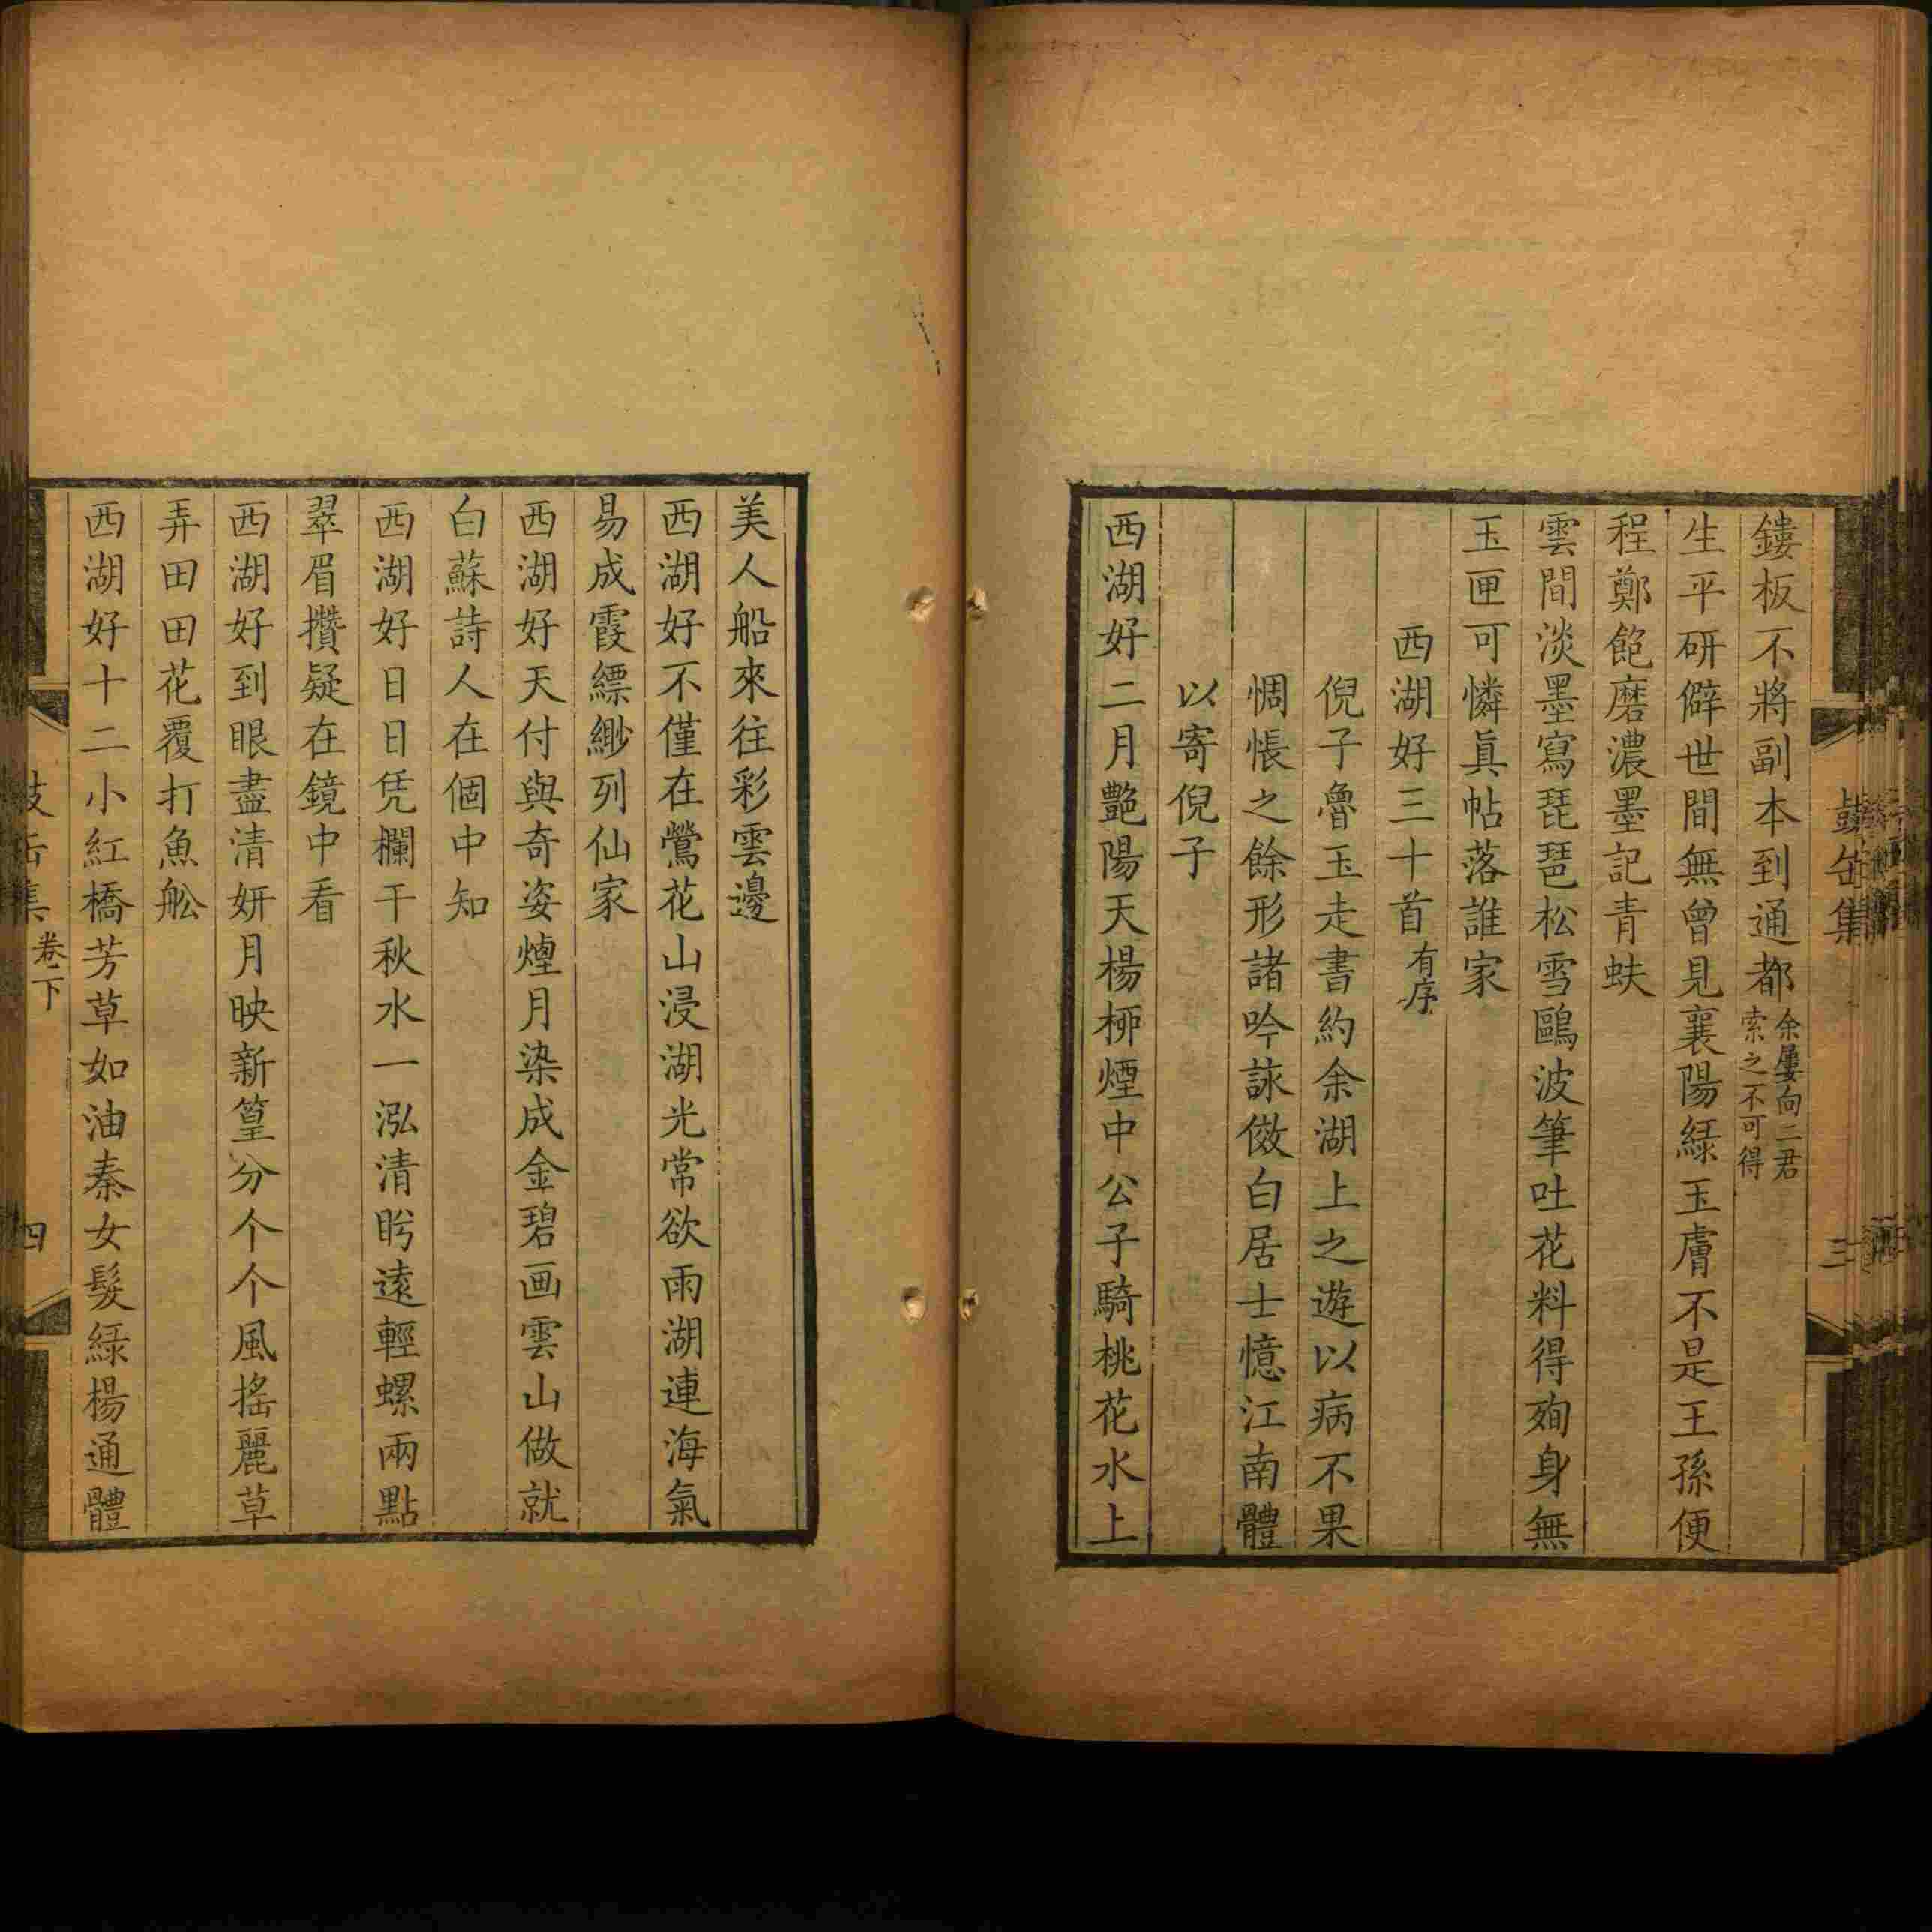 鼓缶集
三
鏤板不將副本到通都余屢向二君索之不可得
生平研僻世間無曾見襄陽綠玉膚不是王孫便
程鄭飽磨濃墨記青蚨
雲間淡墨寫琵琶松雪鷗波筆吐花料得殉身無
玉匣可憐眞帖落誰家
西湖好三十首有序
倪子魯玉走書約余湖上之遊以病不果
惆悵之餘形諸吟詠傚白居士憶江南體
以寄倪子
西湖好二月艷陽天楊桺煙中公子騎桃花水上
美人船來往彩雲邊
西湖好不僅在鶯花山浸湖光常欲雨湖連海氣
易成霞縹緲列仙家
西湖好天付與奇姿煙月染成金碧画雲山做就
白蘇詩人在個中知
西湖好日日凭欄干秋水一泓清盻遠輕螺兩點
翠眉攢疑在鏡中看
西湖好到眼盡清妍月映新篁分个个風搖麗草
弄田田花覆打魚舩
西湖好十二小紅橋芳草如油秦女髮綠楊通體
卷下
四